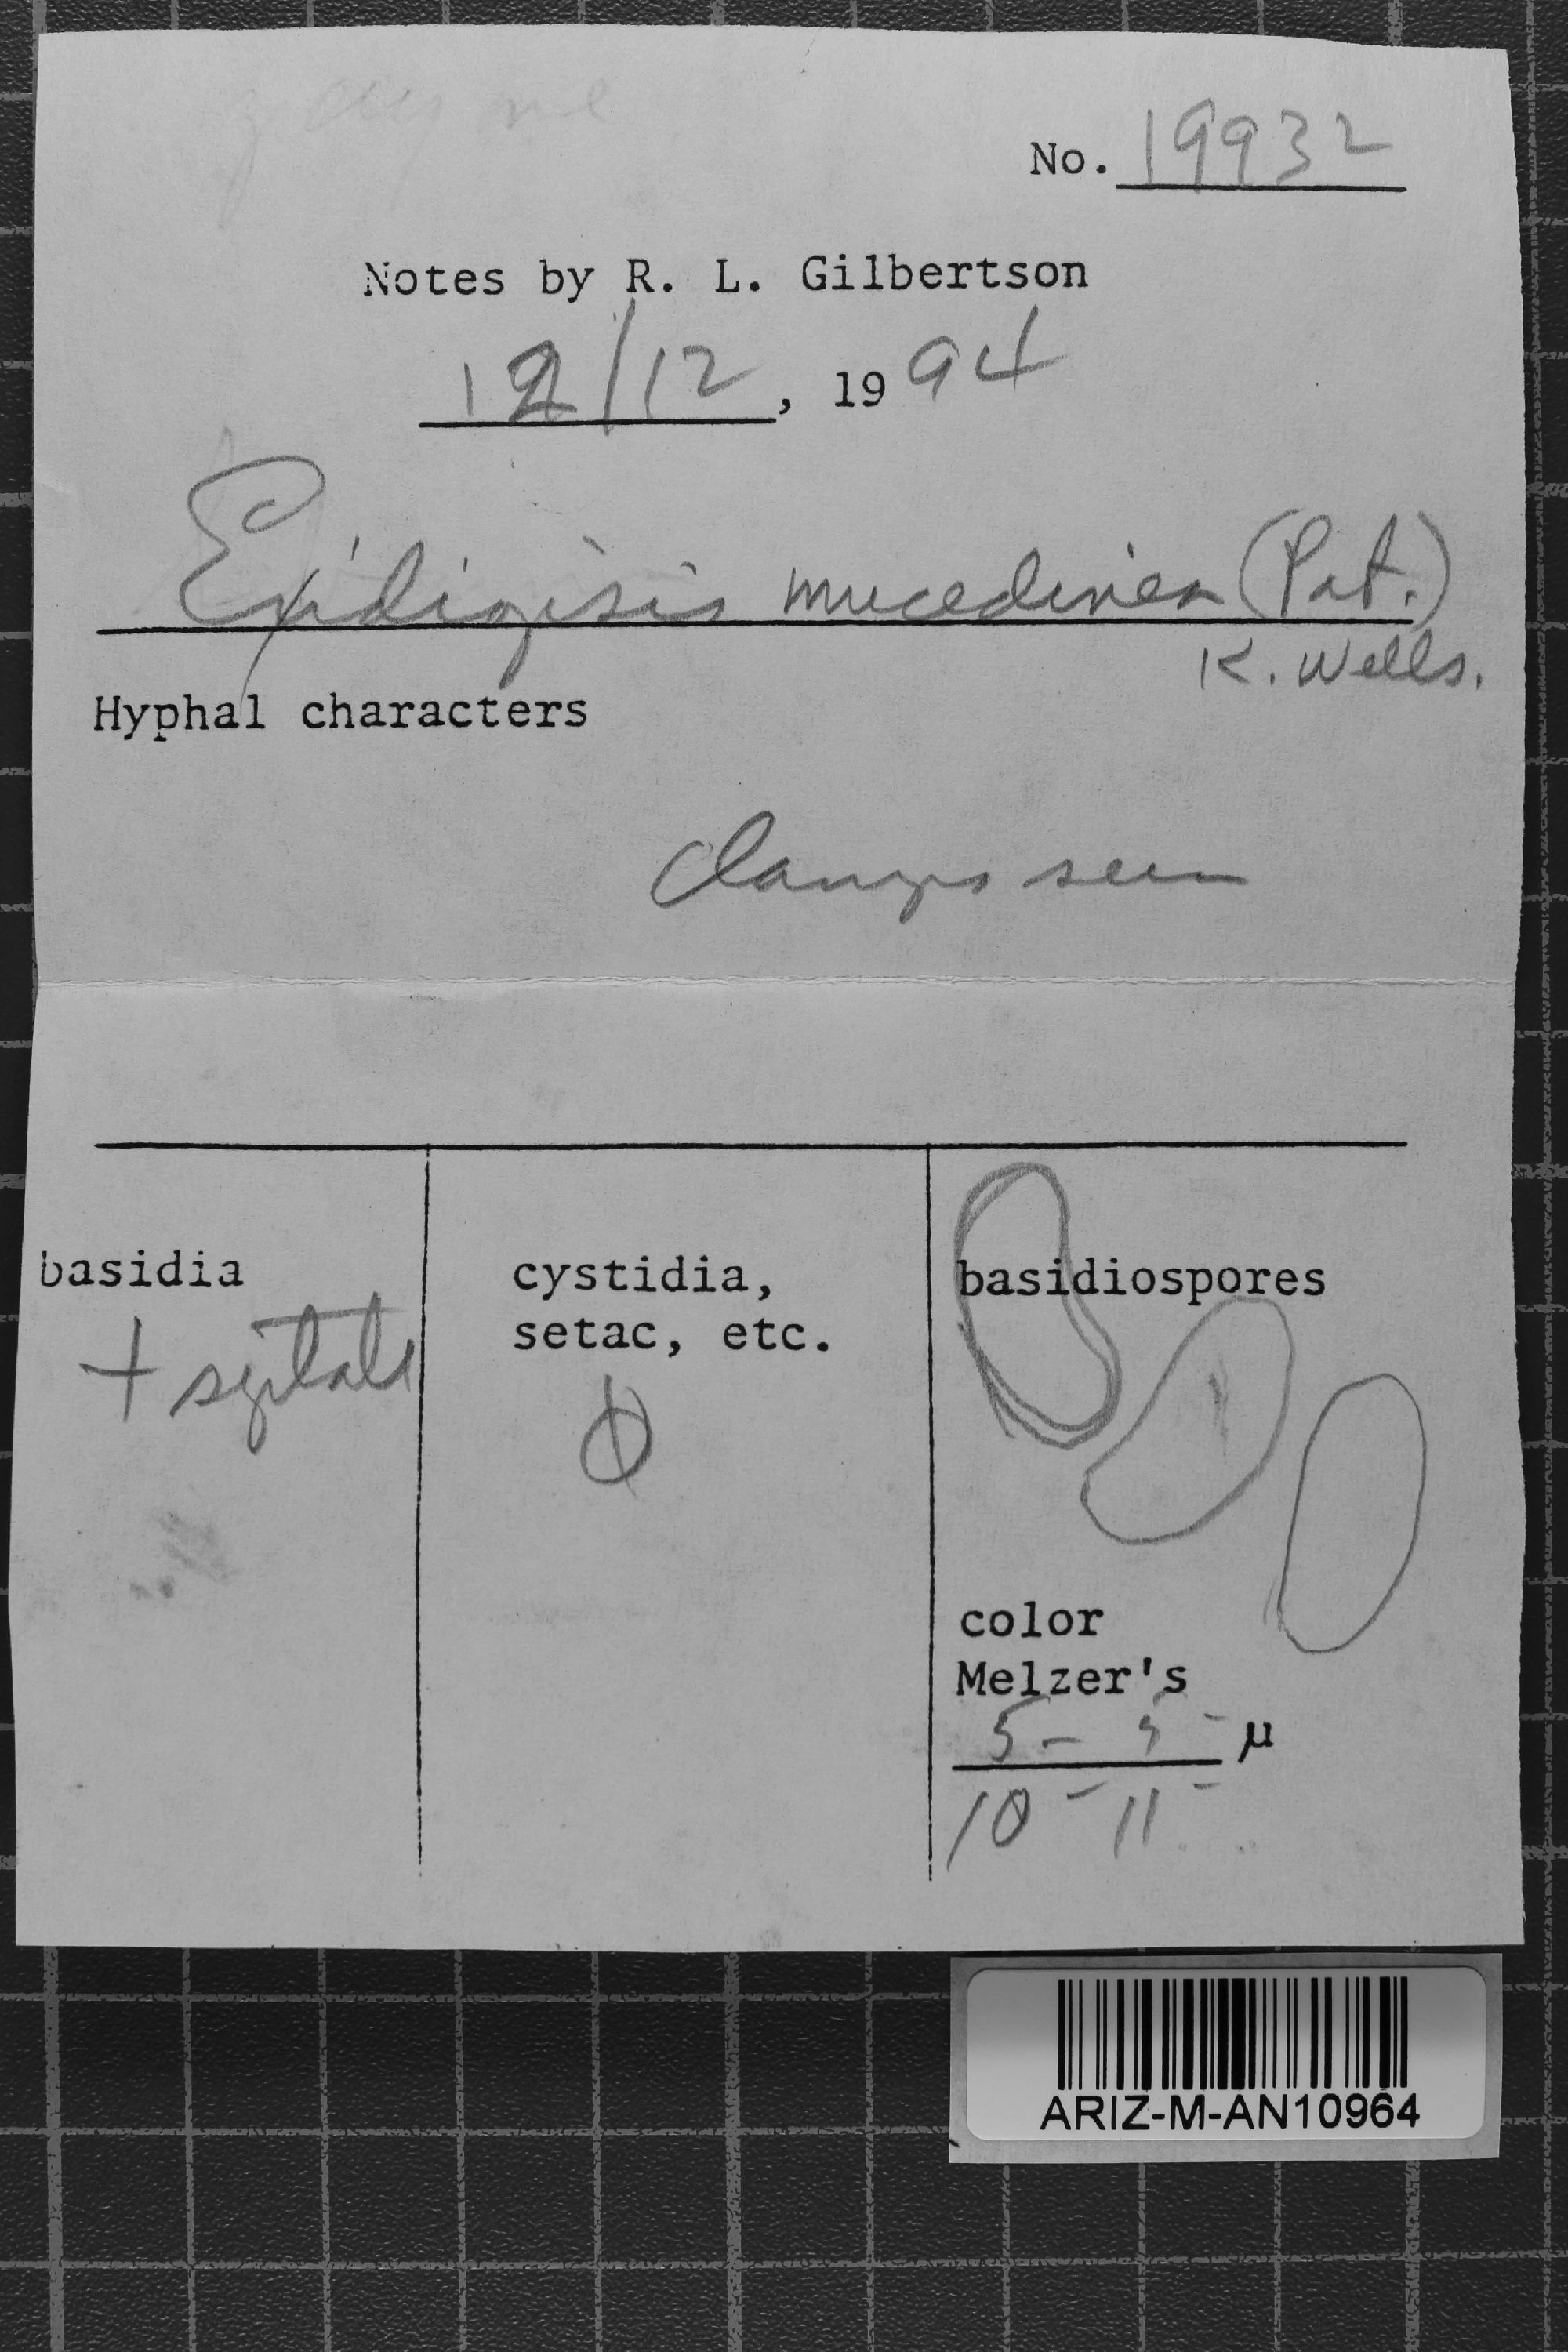 No. 19932
Notes by R. L. Gilbertson
12/12, 1994
Exidiopsis mucedinea (Pat.)
K. Wells.
Hyphal characters
Clamps seen
basidia
+ septate
cystidia,
setac, etc.
ϕ
basidiospores
color
Melzer's
5 - 5 - µ
10 - 11 -
ARIZ-M-AN10964